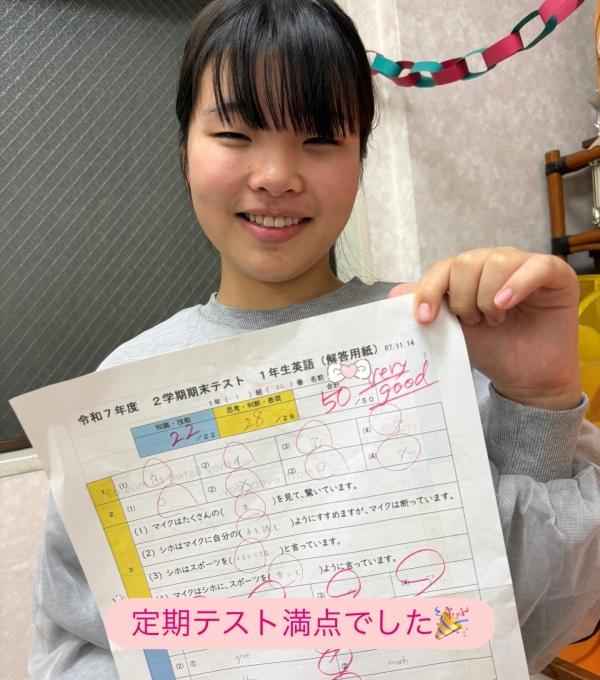 令和7年度 2学期期末テスト 1年生英語(解答用紙) R7.11.14
1年( )組( )番 名前( )
知識・技能 思考・判断・表現 合計
22/22 28/28 50/50 very good
1 (1) (2) イ (3) ア (4)
2 (1) (2) (3) (4)
3
(1) マイクはたくさんの( 本 )を見て、驚いています。
(2) シホはマイクに自分の( 本を読む )ようにすすめますが、マイクは断っています。
(3) シホはスポーツを( )と言っています。
(4) マイクはシホに、スポーツを( )ように言っています。
(3) (4)
定期テスト満点でした🎉
(2) ① give ② much